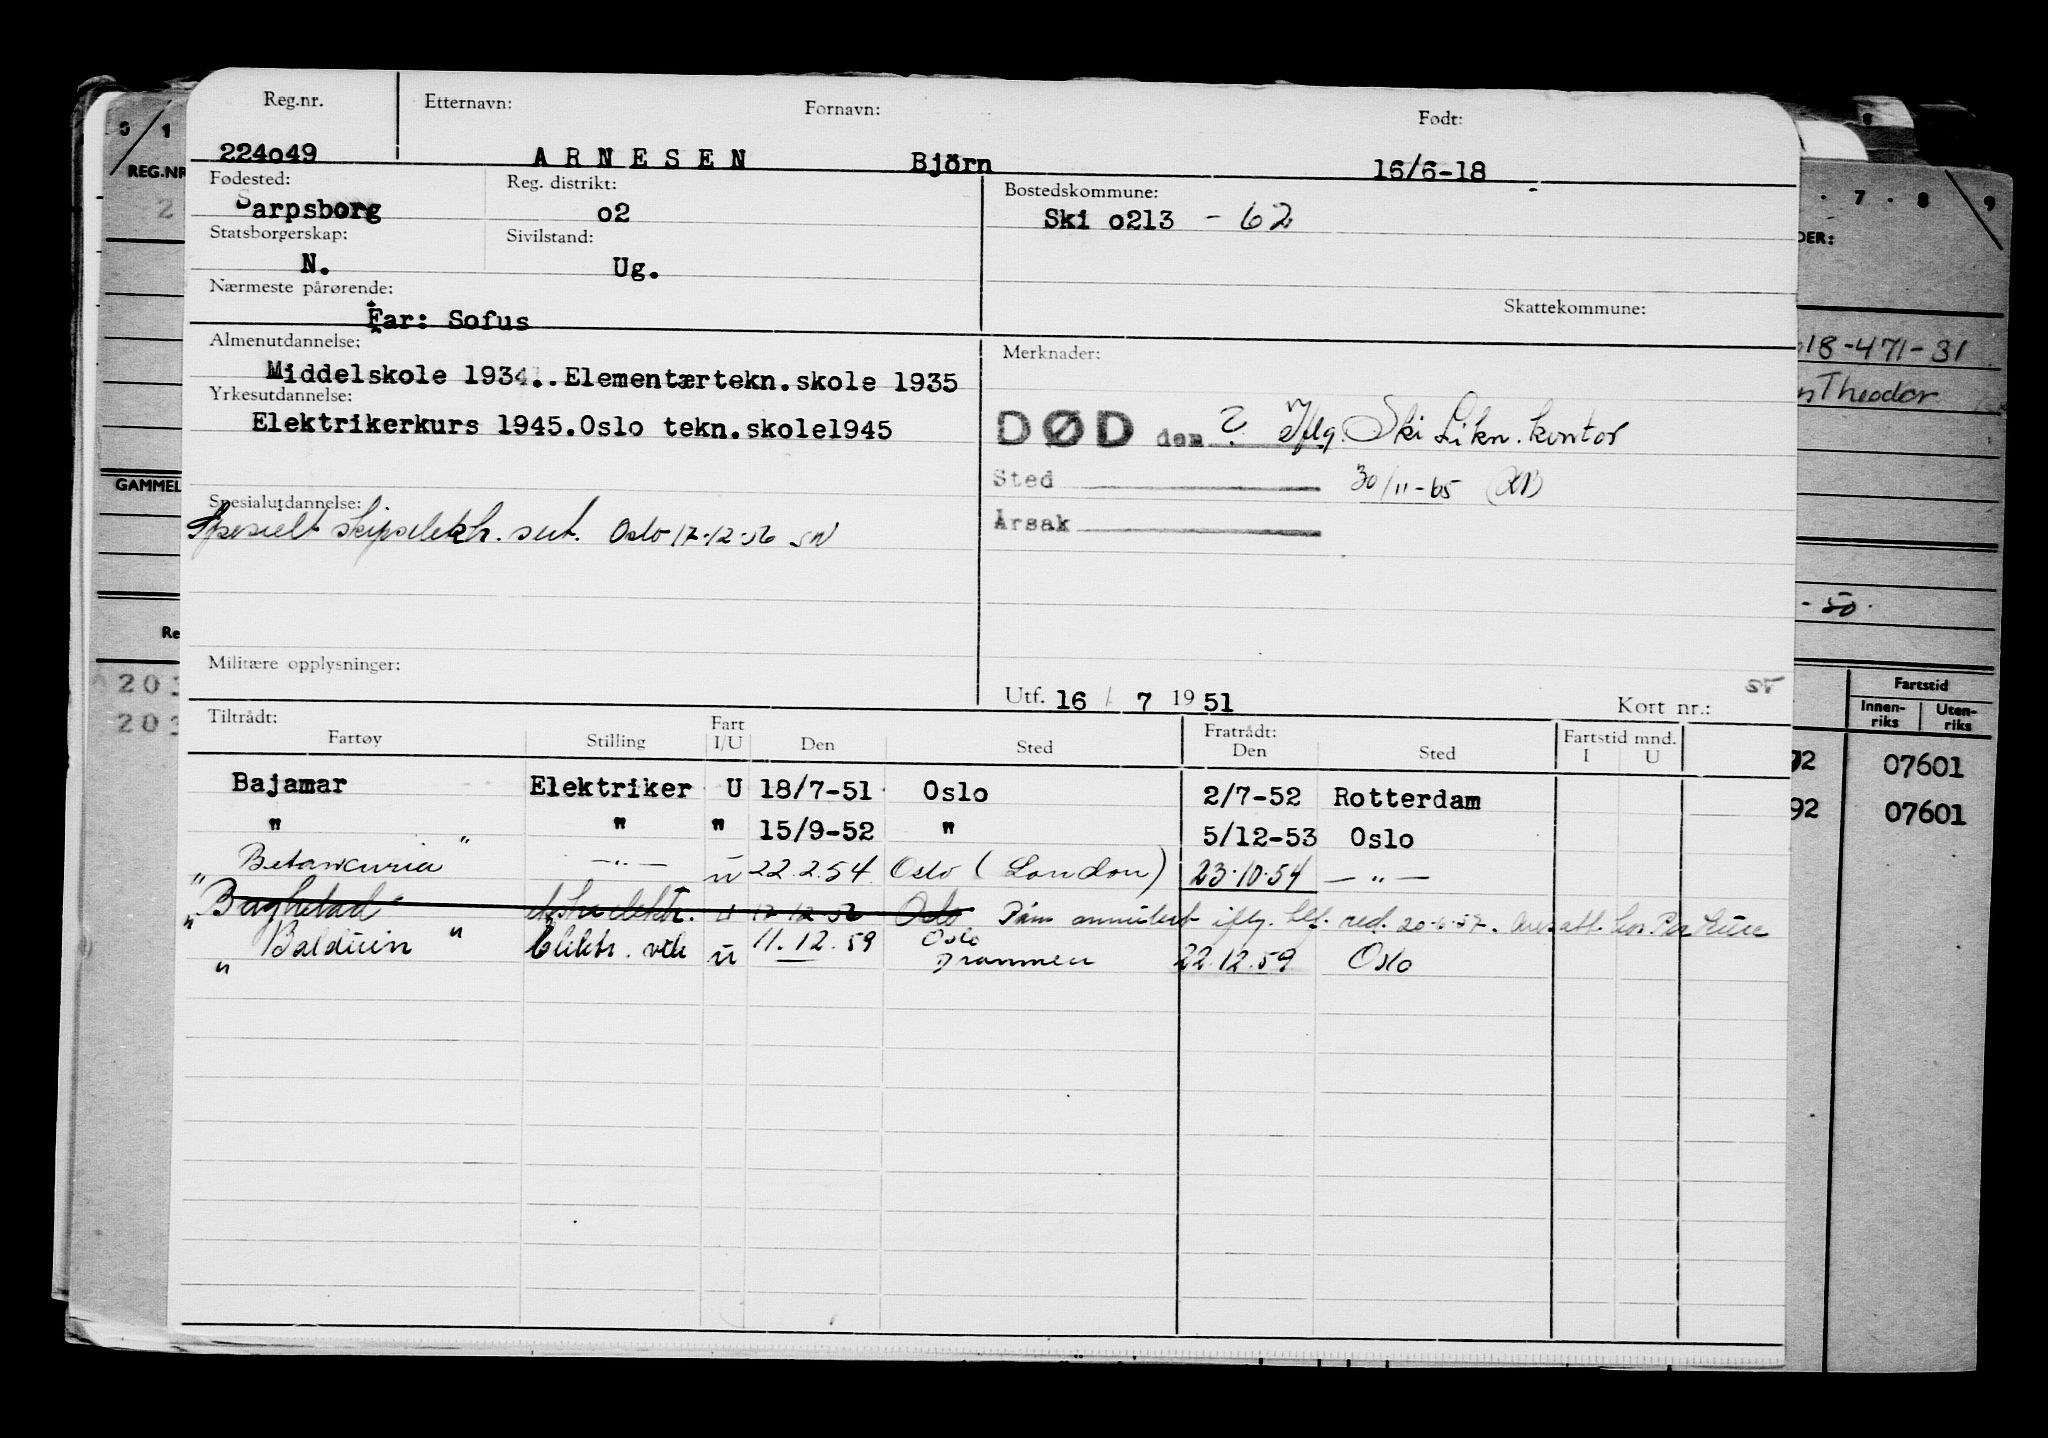 Reg.nr. Etternavn: Fornavn: Født:
224o49 ARNESEN Björn 16/6-18
Fødested: Reg. distrikt: Bostedskommune:
Sarpsborg o2 Ski o213 - 62
Statsborgerskap: Sivilstand:
N. Ug.
Nærmeste pårørende: Skattekommune:
Far: Sofus
Almenutdannelse: Merknader:
Middelskole 1934..Elementærtekn.skole 1935
Yrkesutdannelse:
Elektrikerkurs 1945.Oslo tekn.skole1945
DØD den ? Iflg. Ski Likn. kontor
Sted 30/11-65
Årsak
Spesialutdannelse:
Spesielt skipselektr. sert. Oslo 17-12-56 SN
Militære opplysninger:
Utf. 16 / 7 1951 Kort nr.:
Tiltrådt: Fratrådt:
Fartøy Stilling Fart I/U Den Sted Den Sted Fartstid mnd. I U
Bajamar Elektriker U 18/7-51 Oslo 2/7-52 Rotterdam
" " " 15/9-52 " 5/12-53 Oslo
"Betancuria" —"— u 22.2.54 Oslo (London) 23.10.54 —"—
"Baghdad" elektr. u 17.12.56 Oslo Påm annullert iflg. red. 20-6-57.
"Balduin" Elektr. u 11.12.59 Oslo Drammen 22.12.59 Oslo
0 / 1
REG.NR
2
GAMMEL
Re
203
203
7 . 8 9
DER:
18-471-31
Theodor
- 50.
Fartstid
Innen-riks Uten-riks
92 07601
92 07601